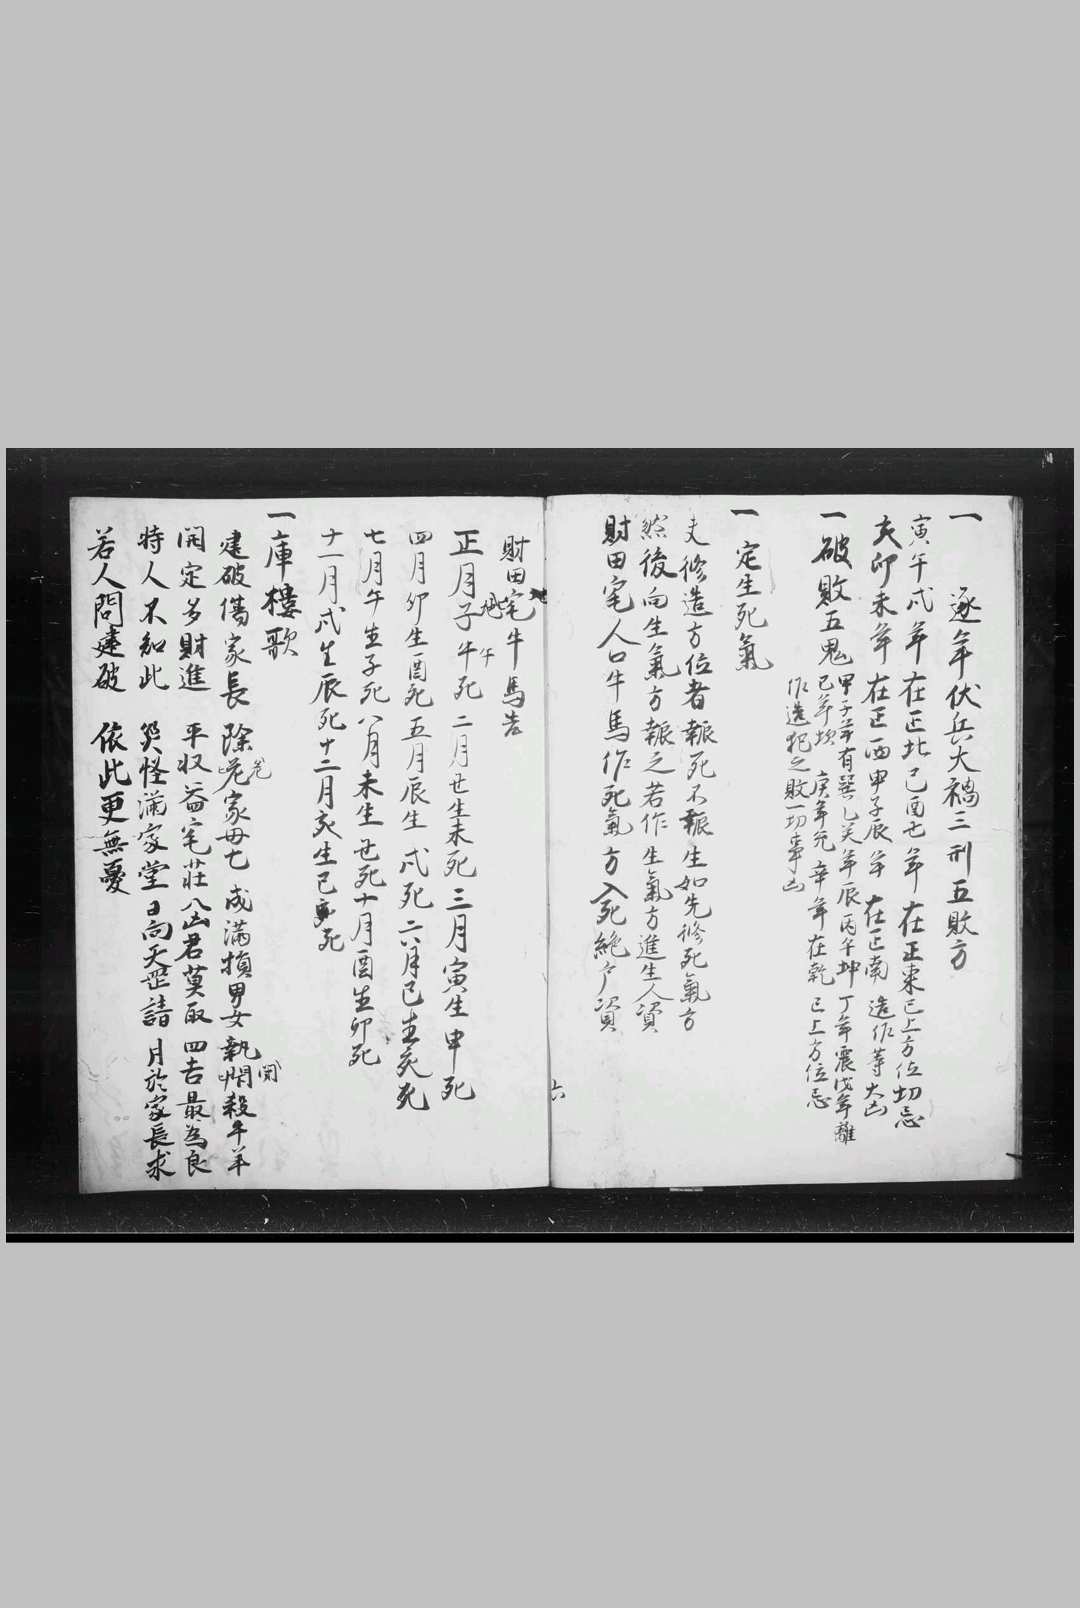 一 逐年伏兵大禍三刑五敗方
寅午戌年在正北巳酉七年在正東已上方位切忌
亥卯未年在正西甲子辰年在正南造作等大凶
一破敗五鬼甲子年有巽乙癸年辰丙午坤丁年震戊年離
己年坎庚年兌辛年在乾已上方位忌
作造犯之敗一切事凶
一定生死氣
夫修造方位者賑死不賑生如先修死氣方
然後向生氣方賑之若作生氣方進生人資
財田宅人口牛馬作死氣方入死絶户資
六
財田宅牛馬吉
正月子午死二月丑生未死三月寅生申死
午
四月卯生酉死五月辰生戌死六月巳生亥死
七月午生子死八月未生丑死十月酉生卯死
十一月戌生辰死十二月亥生巳死
一庫樓歌
建破傷家長 除危家母七 成滿損男女執閉殺牛羊
危
開
開定多財進 平収益宅莊八凶君莫取四吉最為良
時人不知此 災怪滿家堂日向天罡請月於家長求
若人問建破 依此更無憂